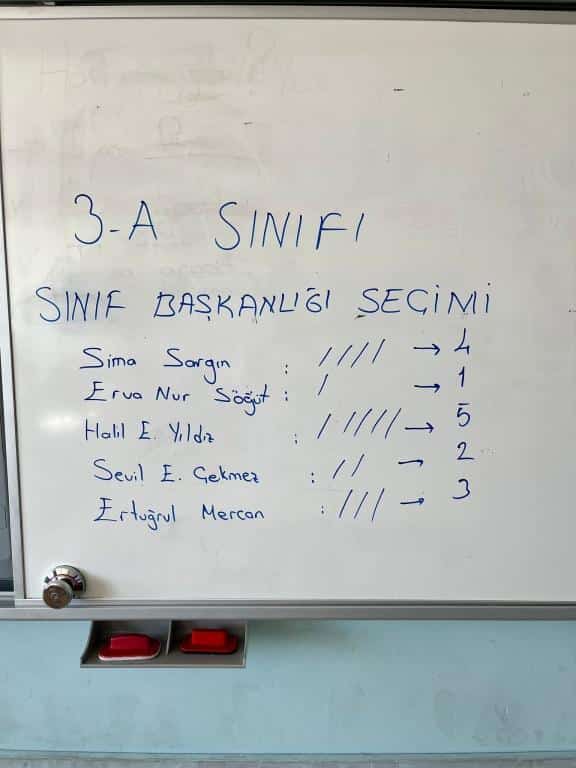 3-A SINIFI
SINIF BAŞKANLIĞI SEÇİMİ
Sima Sargın : //// → 4
Erva Nur Söğüt : / → 1
Halil E. Yıldız : ///// → 5
Sevil E. Çekmez : // → 2
Ertuğrul Mercan : /// → 3